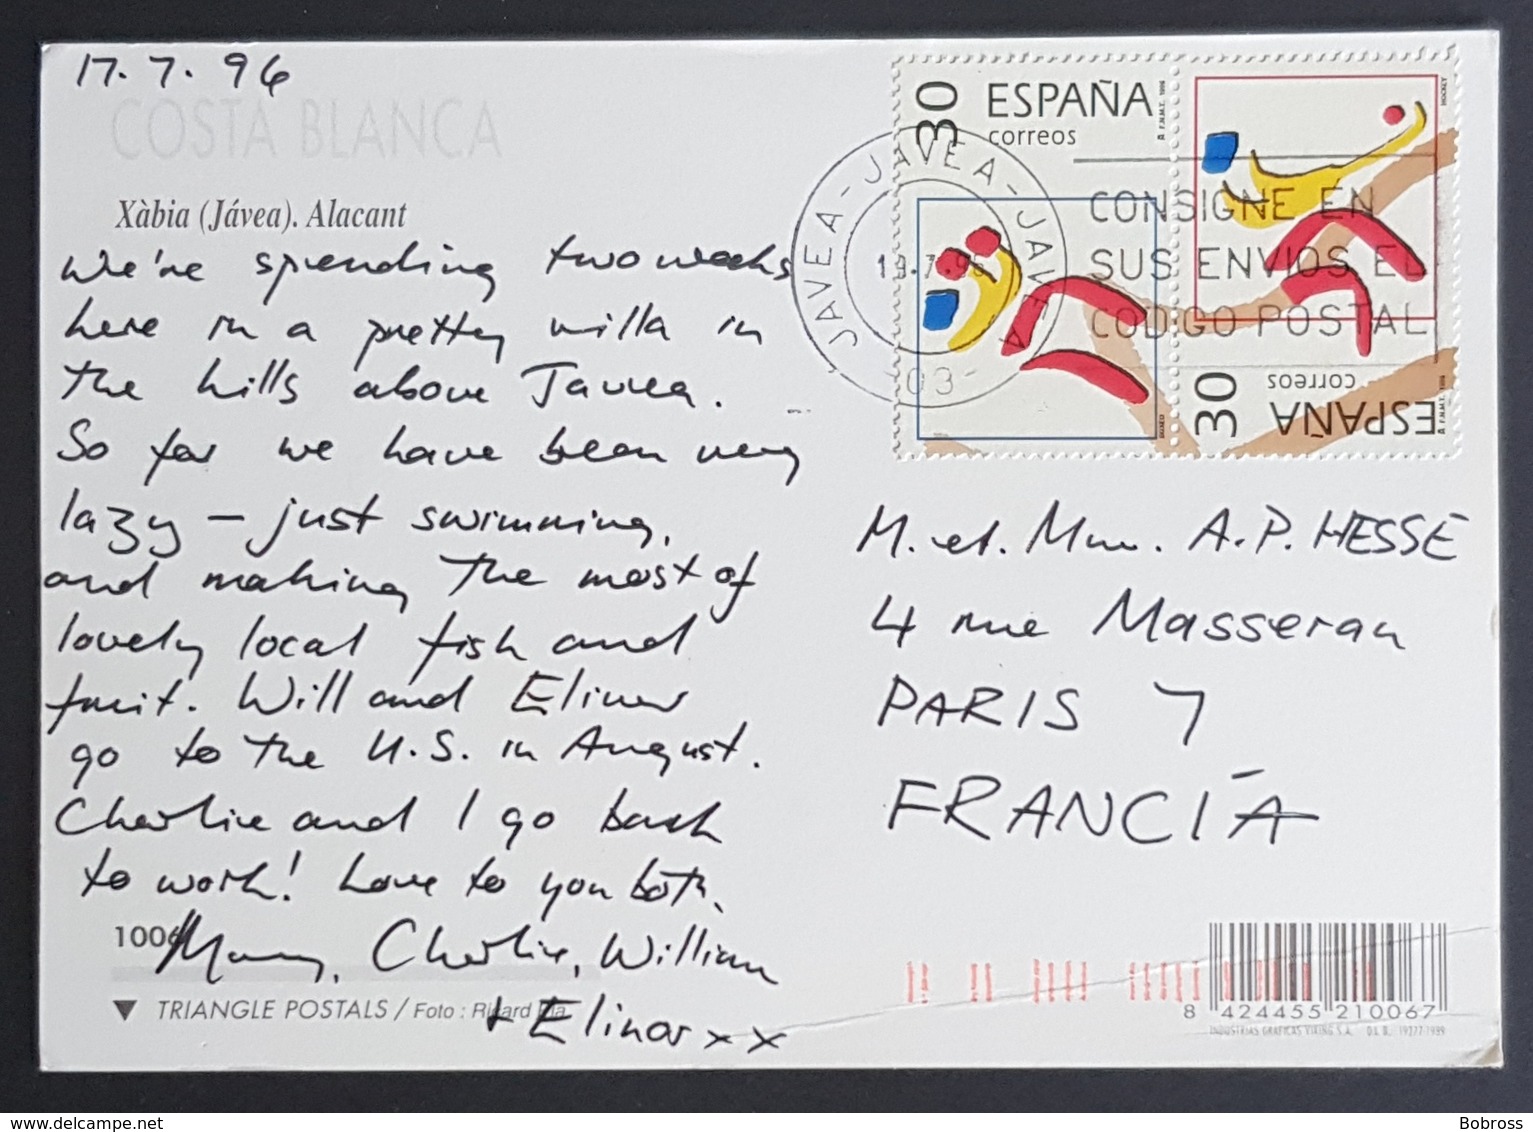 17.7.96
COSTA BLANCA
Xàbia (Jávea). Alacant
We're spending two weeks
here in a pretty villa in
the hills above Javea.
So far we have been very
lazy – just swimming,
and making the most of
lovely local fish and
fruit. Will and Elinor
go to the U.S. in August.
Charlie and I go back
to work! Love to you both,
Charlie, William
+ Elinor x x
1006
TRIANGLE POSTALS / Foto : Ricard Pla
30 ESPAÑA
correos
BOXEO
HOCKEY
30 ESPAÑA
correos
JAVEA - JAVEA - JAVEA
19.7.96
03-
CONSIGNE EN
SUS ENVIOS EL
CODIGO POSTAL
M. et. Mme. A.P. HESSE
4 rue Masseran
PARIS 7
FRANCIA
8 424455 210067
INDUSTRIAS GRAFICAS VIKING S.A. D.L.B. 19277-1989
Bobross